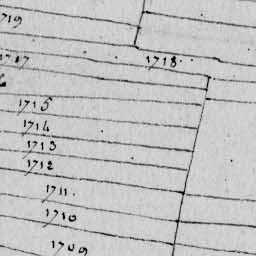 1719
1717 1718
1715
1714
1713
1712
1711.
1710
1709